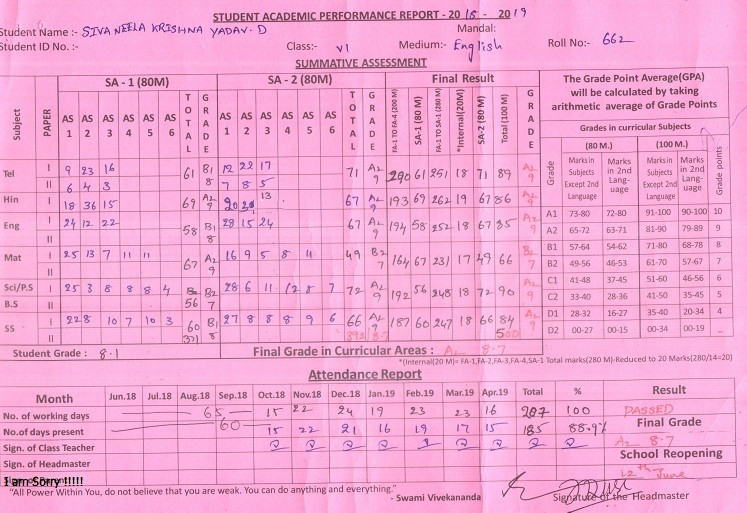 STUDENT ACADEMIC PERFORMANCE REPORT - 2018 - 2019
Student Name :- SIVA NEELA KRISHNA YADAV. D Mandal:
Student ID No. :- Class:- VI Medium:- English Roll No:- 662
SUMMATIVE ASSESSMENT
Subject PAPER SA - 1 (80M) SA - 2 (80M) Final Result
AS 1 AS 2 AS 3 AS 4 AS 5 AS 6 TOTAL GRADE AS 1 AS 2 AS 3 AS 4 AS 5 AS 6 TOTAL GRADE FA-1 TO FA-4 (200 M) SA-1 (80 M) FA-1 TO SA-1 (280 M) *Internal(20M) SA-2 (80 M) Total (100 M) GRADE
Tel I 9 23 16 61 B1 8 12 22 17 71 A2 9 290 61 251 18 71 89 A2 9
II 6 4 3 7 8 5
Hin I 18 36 15 69 A2 9 13 67 A2 9 193 69 262 19 67 86 A2 9
Eng I 24 12 22 58 B1 8 28 15 24 67 A2 9 194 58 252 18 67 85 A2 9
II
Mat I 25 13 7 11 11 67 A2 9 16 9 5 8 11 49 B2 7 164 67 231 17 49 66 B2 7
II
Sci/P.S I 25 3 8 8 8 4 56 B2 7 28 6 11 12 8 7 72 A2 9 192 56 248 18 72 90 A2 9
B.S II
SS I 22 8 10 7 10 3 60 B1 8 27 8 8 8 9 6 66 A2 9 187 60 247 18 66 84 A2 9
II 371 392 8.7 500
Student Grade : 8.1 Final Grade in Curricular Areas : A2 8.7
*(Internal(20 M)= FA-1,FA-2,FA-3,FA-4,SA-1 Total marks(280 M)-Reduced to 20 Marks(280/14=20)
The Grade Point Average(GPA)
will be calculated by taking
arithmetic average of Grade Points
Grades in curricular Subjects
Grade (80 M.) (100 M.) Grade points
Marks in Subjects Except 2nd Language Marks in 2nd Lang-uage Marks in Subjects Except 2nd Language Marks in 2nd Lang-uage
A1 73-80 72-80 91-100 90-100 10
A2 65-72 63-71 81-90 79-89 9
B1 57-64 54-62 71-80 68-78 8
B2 49-56 46-53 61-70 57-67 7
C1 41-48 37-45 51-60 46-56 6
C2 33-40 28-36 41-50 35-45 5
D1 28-32 16-27 35-40 20-34 4
D2 00-27 00-15 00-34 00-19 -
Attendance Report
Month Jun.18 Jul.18 Aug.18 Sep.18 Oct.18 Nov.18 Dec.18 Jan.19 Feb.19 Mar.19 Apr.19 Total % Result
No. of working days 65 15 22 24 19 23 23 16 207 100 PASSED
No.of days present 60 15 22 21 16 19 17 15 185 88.9% Final Grade
Sign. of Class Teacher A2 8.7
Sign. of Headmaster School Reopening
I am Sorry !!!!! 12th June
"All Power Within You, do not believe that you are weak. You can do anything and everything."
- Swami Vivekananda Signature of the Headmaster